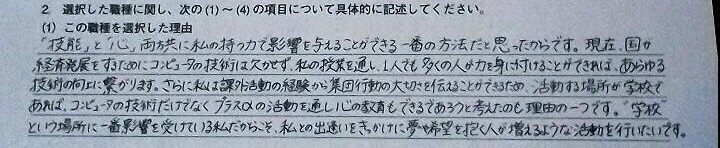 2. 選択した職種に関し、次の(1)～(4)の項目について具体的に記述してください。
(1) この職種を選択した理由
"技能"と"心"両方共に私の持つ力で影響を与えることができる一番の方法だと思ったからです。現在、国が
経済発展をするためにコンピュータの技術は欠かせず、私の授業を通し、1人でも多くの人が力を身に付けることができれば、あらゆる
技術の向上に繋がります。さらに私は課外活動の経験から集団行動の大切さを伝えることができるため、活動する場所が学校で
あれば、コンピュータの技術だけでなくプラスαの活動を通し心の教育もできるであろうと考えたのも理由の一つです。"学校"
という場所に一番影響を受けている私だからこそ、私との出逢いをきっかけに夢や希望を抱く人が増えるような活動を行いたいです。